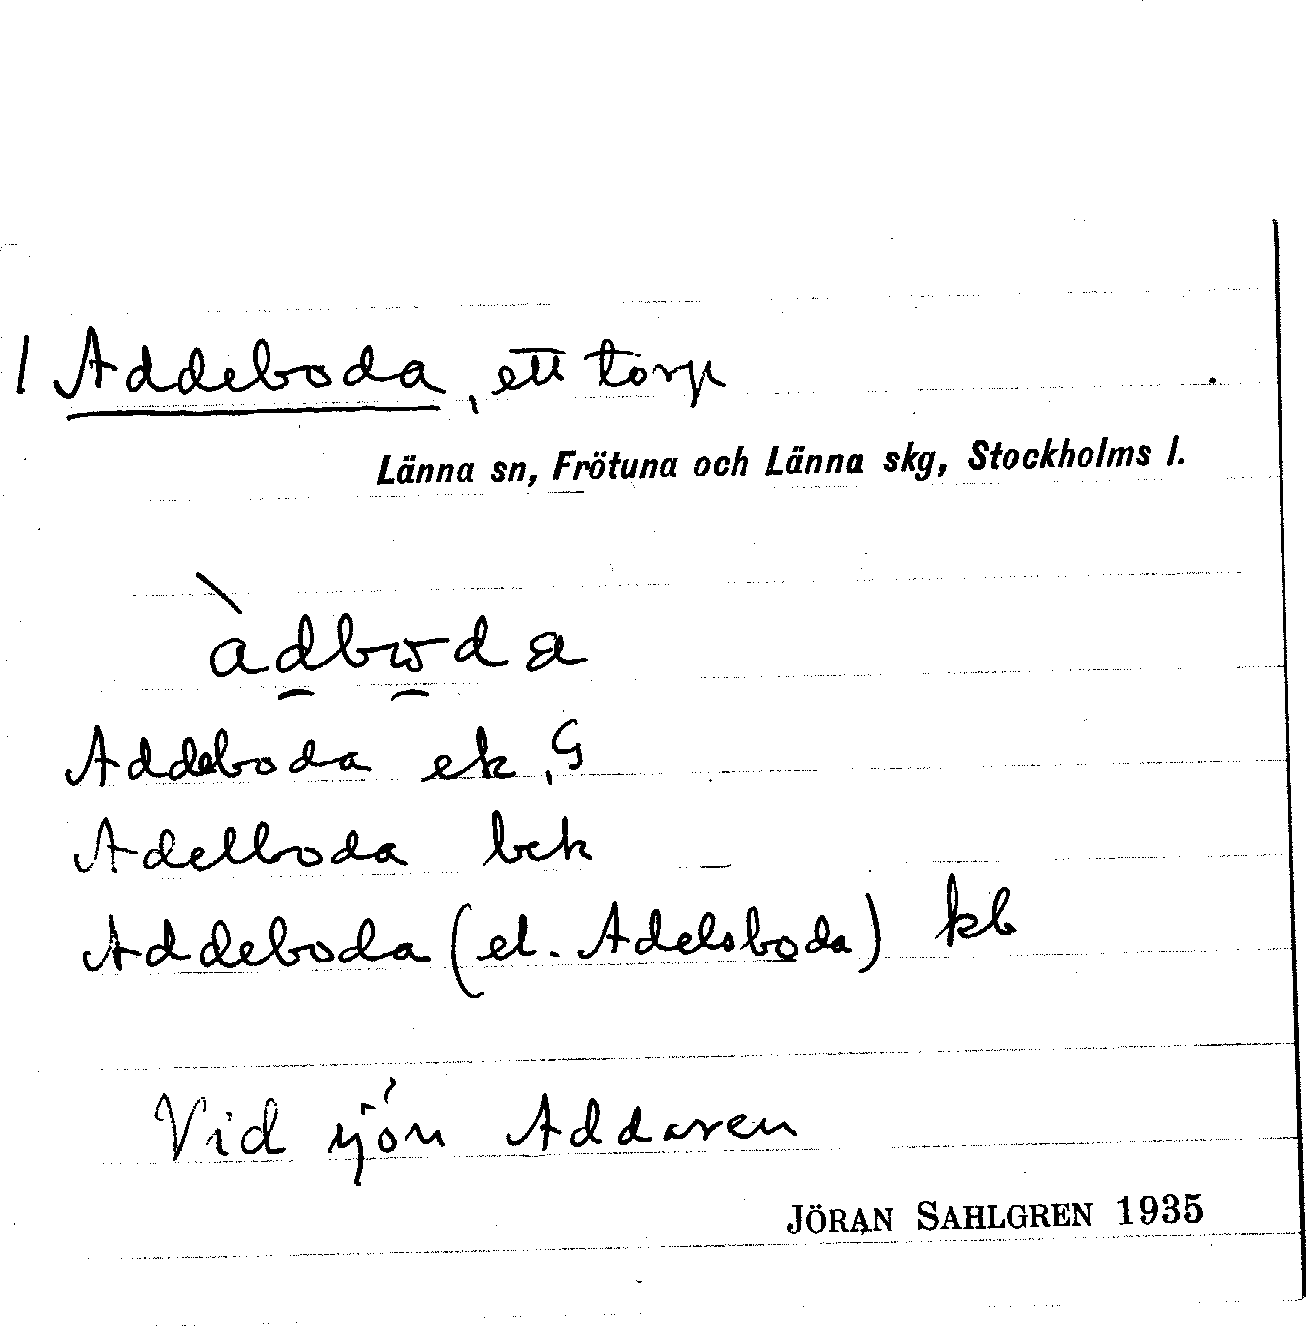 1 Addeboda, ett torp
Länna sn, Frötuna och Länna skg, Stockholms l.
àdbωda
Addeboda ek, G
Adelboda bek
Addeboda (el. Adelsboda) kb
Vid sjön Addaren
JÖRAN SAHLGREN 1935